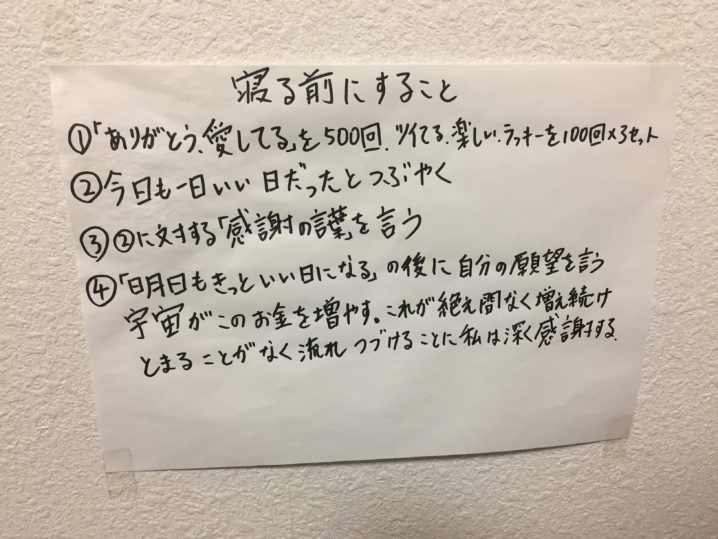 寝る前にすること
①「ありがとう、愛してる」を500回、ツイてる、楽しい、ラッキーを100回×3セット
②今日も一日いい日だったとつぶやく
③②に対する「感謝の言葉」を言う
④「明日もきっといい日になる」の後に自分の願望を言う
宇宙がこのお金を増やす。これが絶え間なく増え続け
とまることがなく流れつづけることに私は深く感謝する.